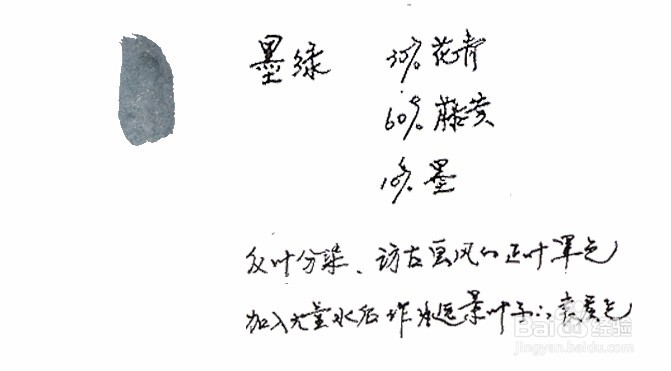 墨绿 30% 花青
60% 藤黄
10% 墨
反叶分染、访古画风的正叶罩色
加入大量水后作为远景叶子的衰黄色
Baidu 经验
jingyan.baidu.com